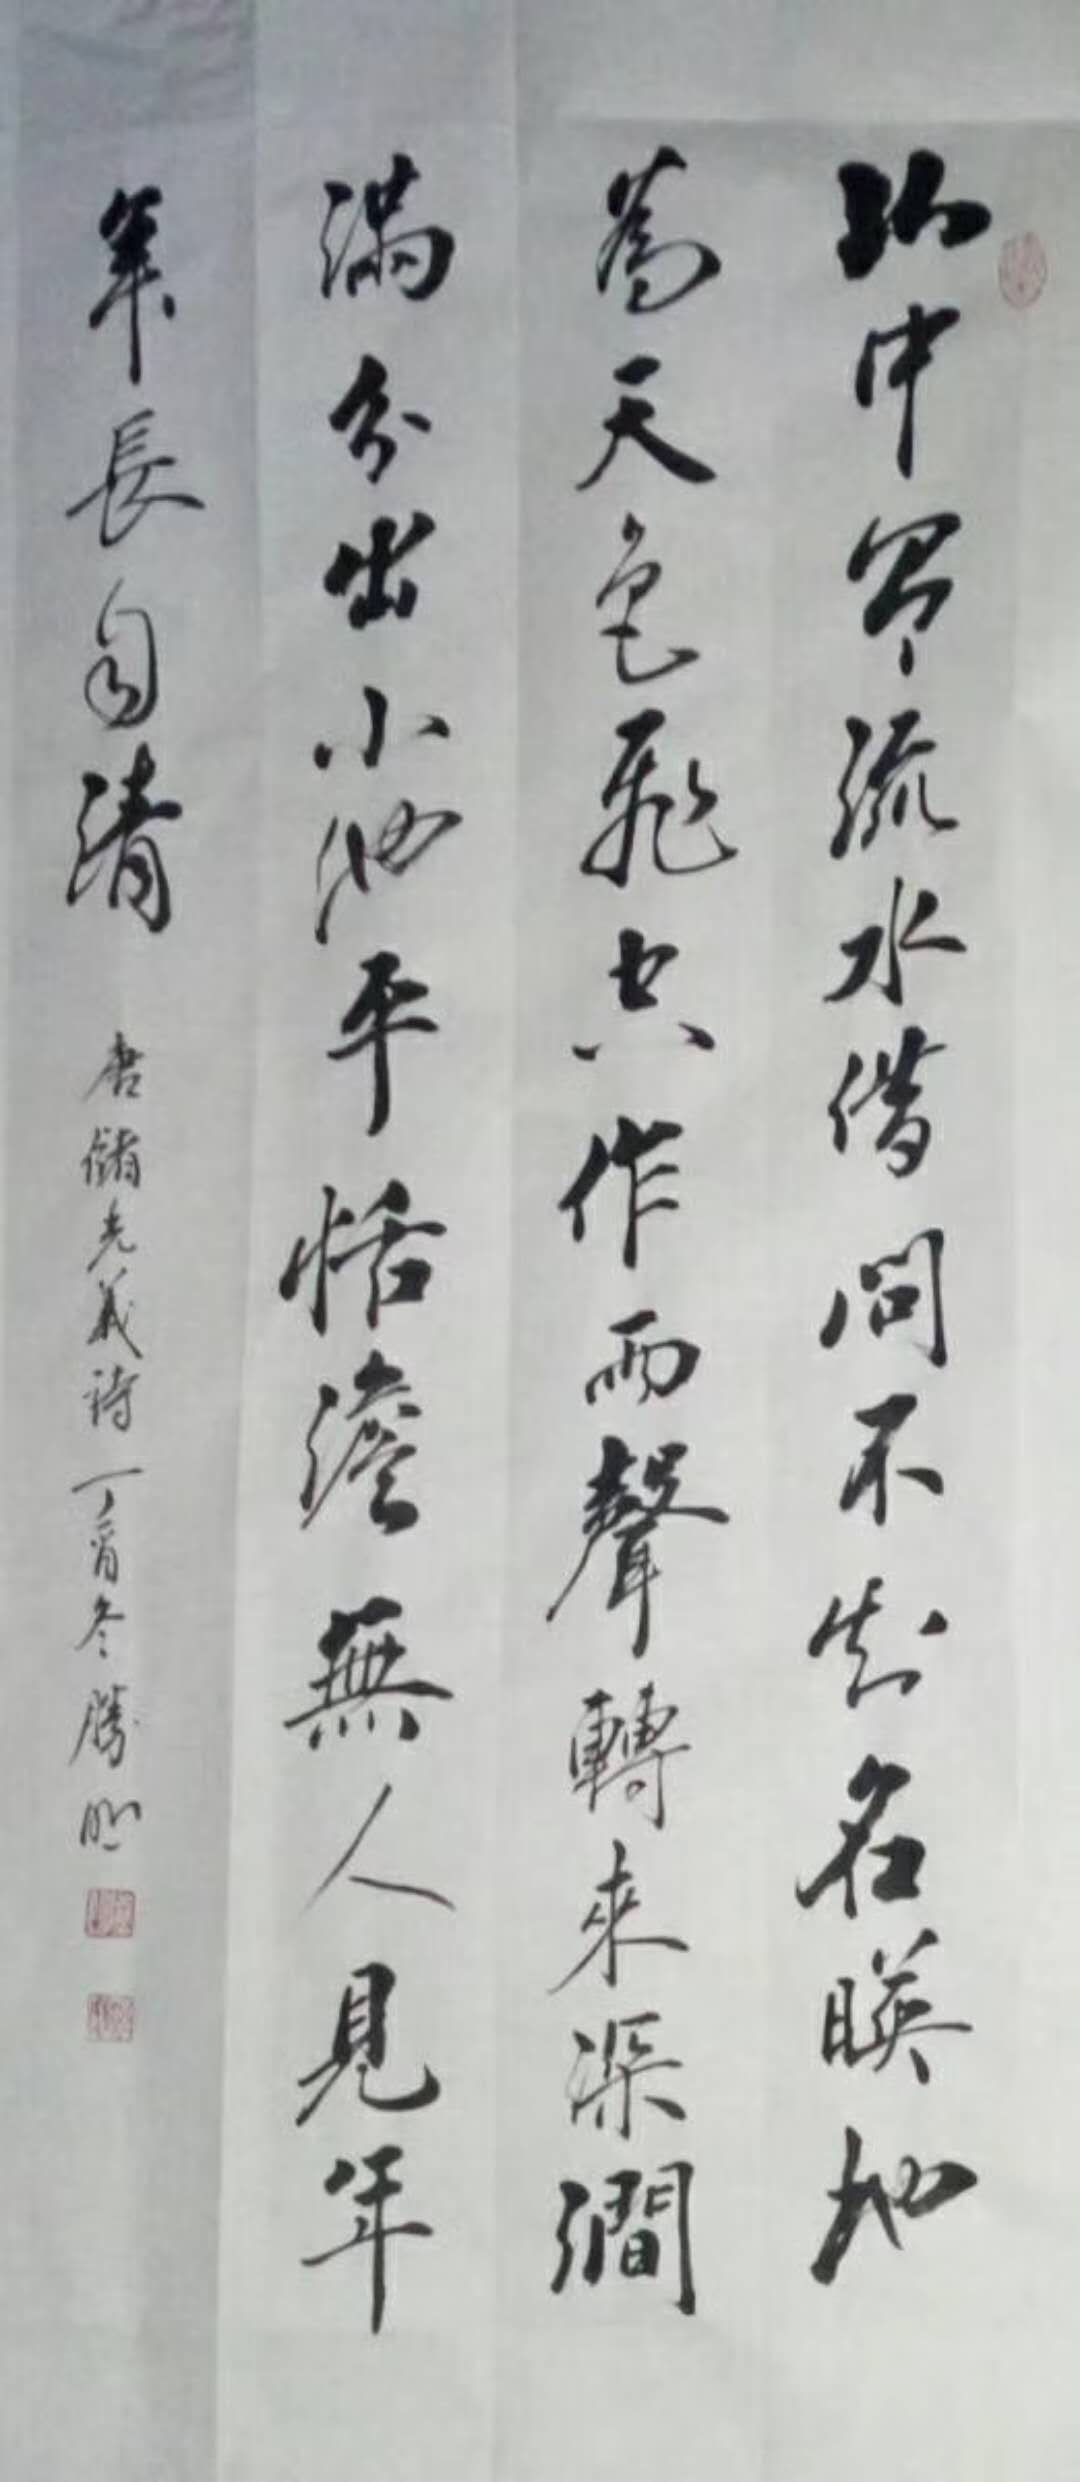 山中有流水借問不知名暎地
為天色飛空作雨聲轉來深澗
滿分出小池平恬澹無人見年
年長自清
唐儲光羲詩丁酉冬勝明